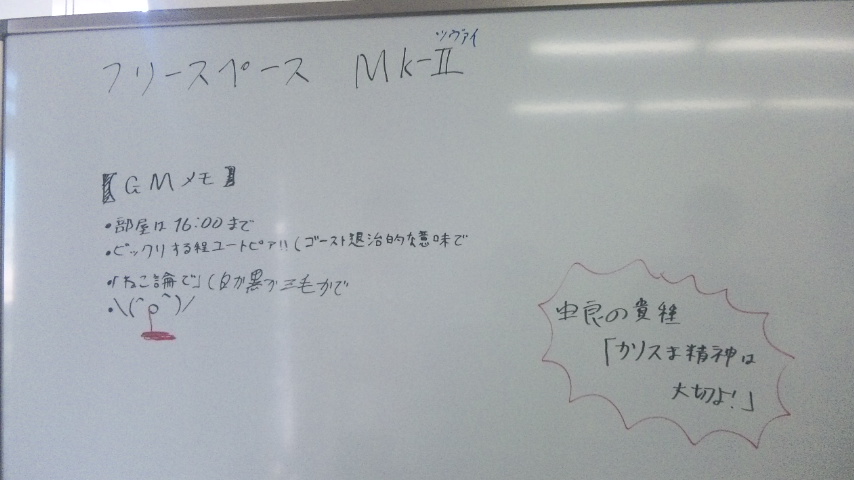 ツヴァイ
フリースペース Mk-Ⅱ
【GMメモ】
・部屋は16:00まで
・ビックリする程ユートピア!!(ゴースト退治的な意味で
・「ねこ論で」(白か黒か三毛かで
・\(^ρ^)/
の貴種
「カリスま精神は
大切よ!」